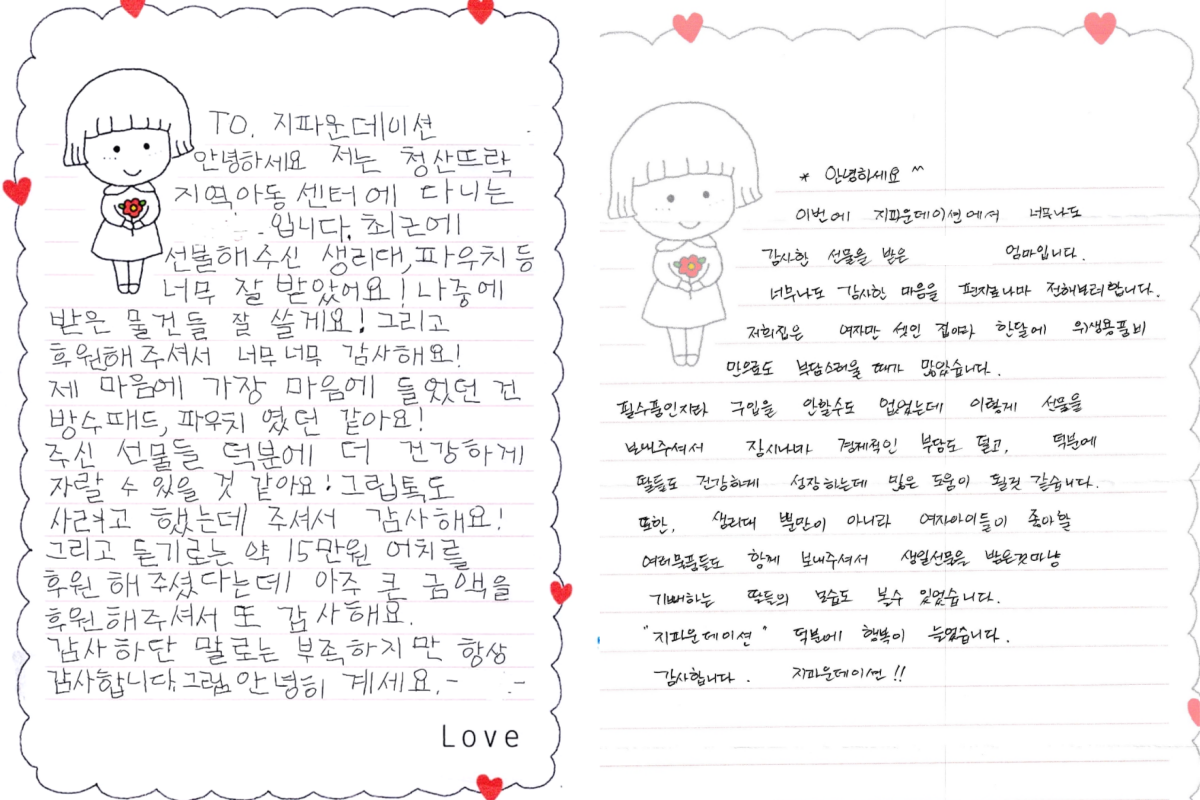 TO. 지파운데이션
안녕하세요 저는 청산뜨락
지역아동센터에 다니는
입니다. 최근에
선불해주신 생리대, 파우치 등
너무 잘 받았어요! 나중에
받은 물건들 잘 쓸게요! 그리고
후원해주셔서 너무너무 감사해요!
제 마음에 가장 마음에 들었던 건
방수패드, 파우치 였던 같아요!
주신 선물들 덕분에 더 건강하게
자랄 수 있을 것 같아요! 그립톡도
사려고 했는데 주셔서 감사해요!
그리고 듣기로는 약 15만원 어치를
후원 해주셨다는데 아주 큰 금액을
후원해주셔서 또 감사해요.
감사하단 말로는 부족하지만 항상
감사합니다. 그럼, 안녕히 계세요.-
.-
Love
* 안녕하세요 ^^
이번에 지파운데이션에서 너무나도
감사한 선물을 받은 엄마입니다.
너무나도 감사한 마음을 편지로나마 전해보려합니다.
저희집은 여자만 셋인 집이라 한달에 위생용품비
만으로도 부담스러울 때가 많았습니다.
필수품인지라 구입을 안할수도 없었는데 이렇게 선물을
보내주셔서 잠시나마 경제적인 부담도 덜고, 덕분에
딸들도 건강하게 성장하는데 많은 도움이 될것 같습니다.
또한, 생리대 뿐만이 아니라 여자아이들이 좋아할
여러물품들도 함께 보내주셔서 생일선물을 받은것마냥
기뻐하는 딸들의 모습도 볼수 있었습니다.
"지파운데이션" 덕분에 행복이 늘었습니다.
감사합니다. 지파운데이션!!